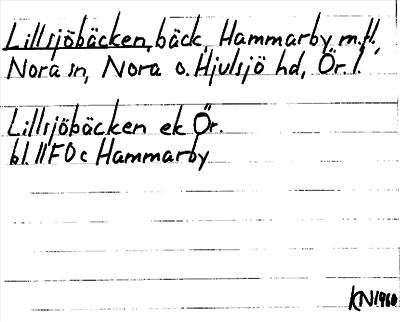 Lillsjöbäcken, bäck, Hammarby m.fl.,
Nora sn, Nora o. Hjulsjö hd, Ör. l.
Lillsjöbäcken ek Ör.
bl. 11F0c Hammarby
KN1960